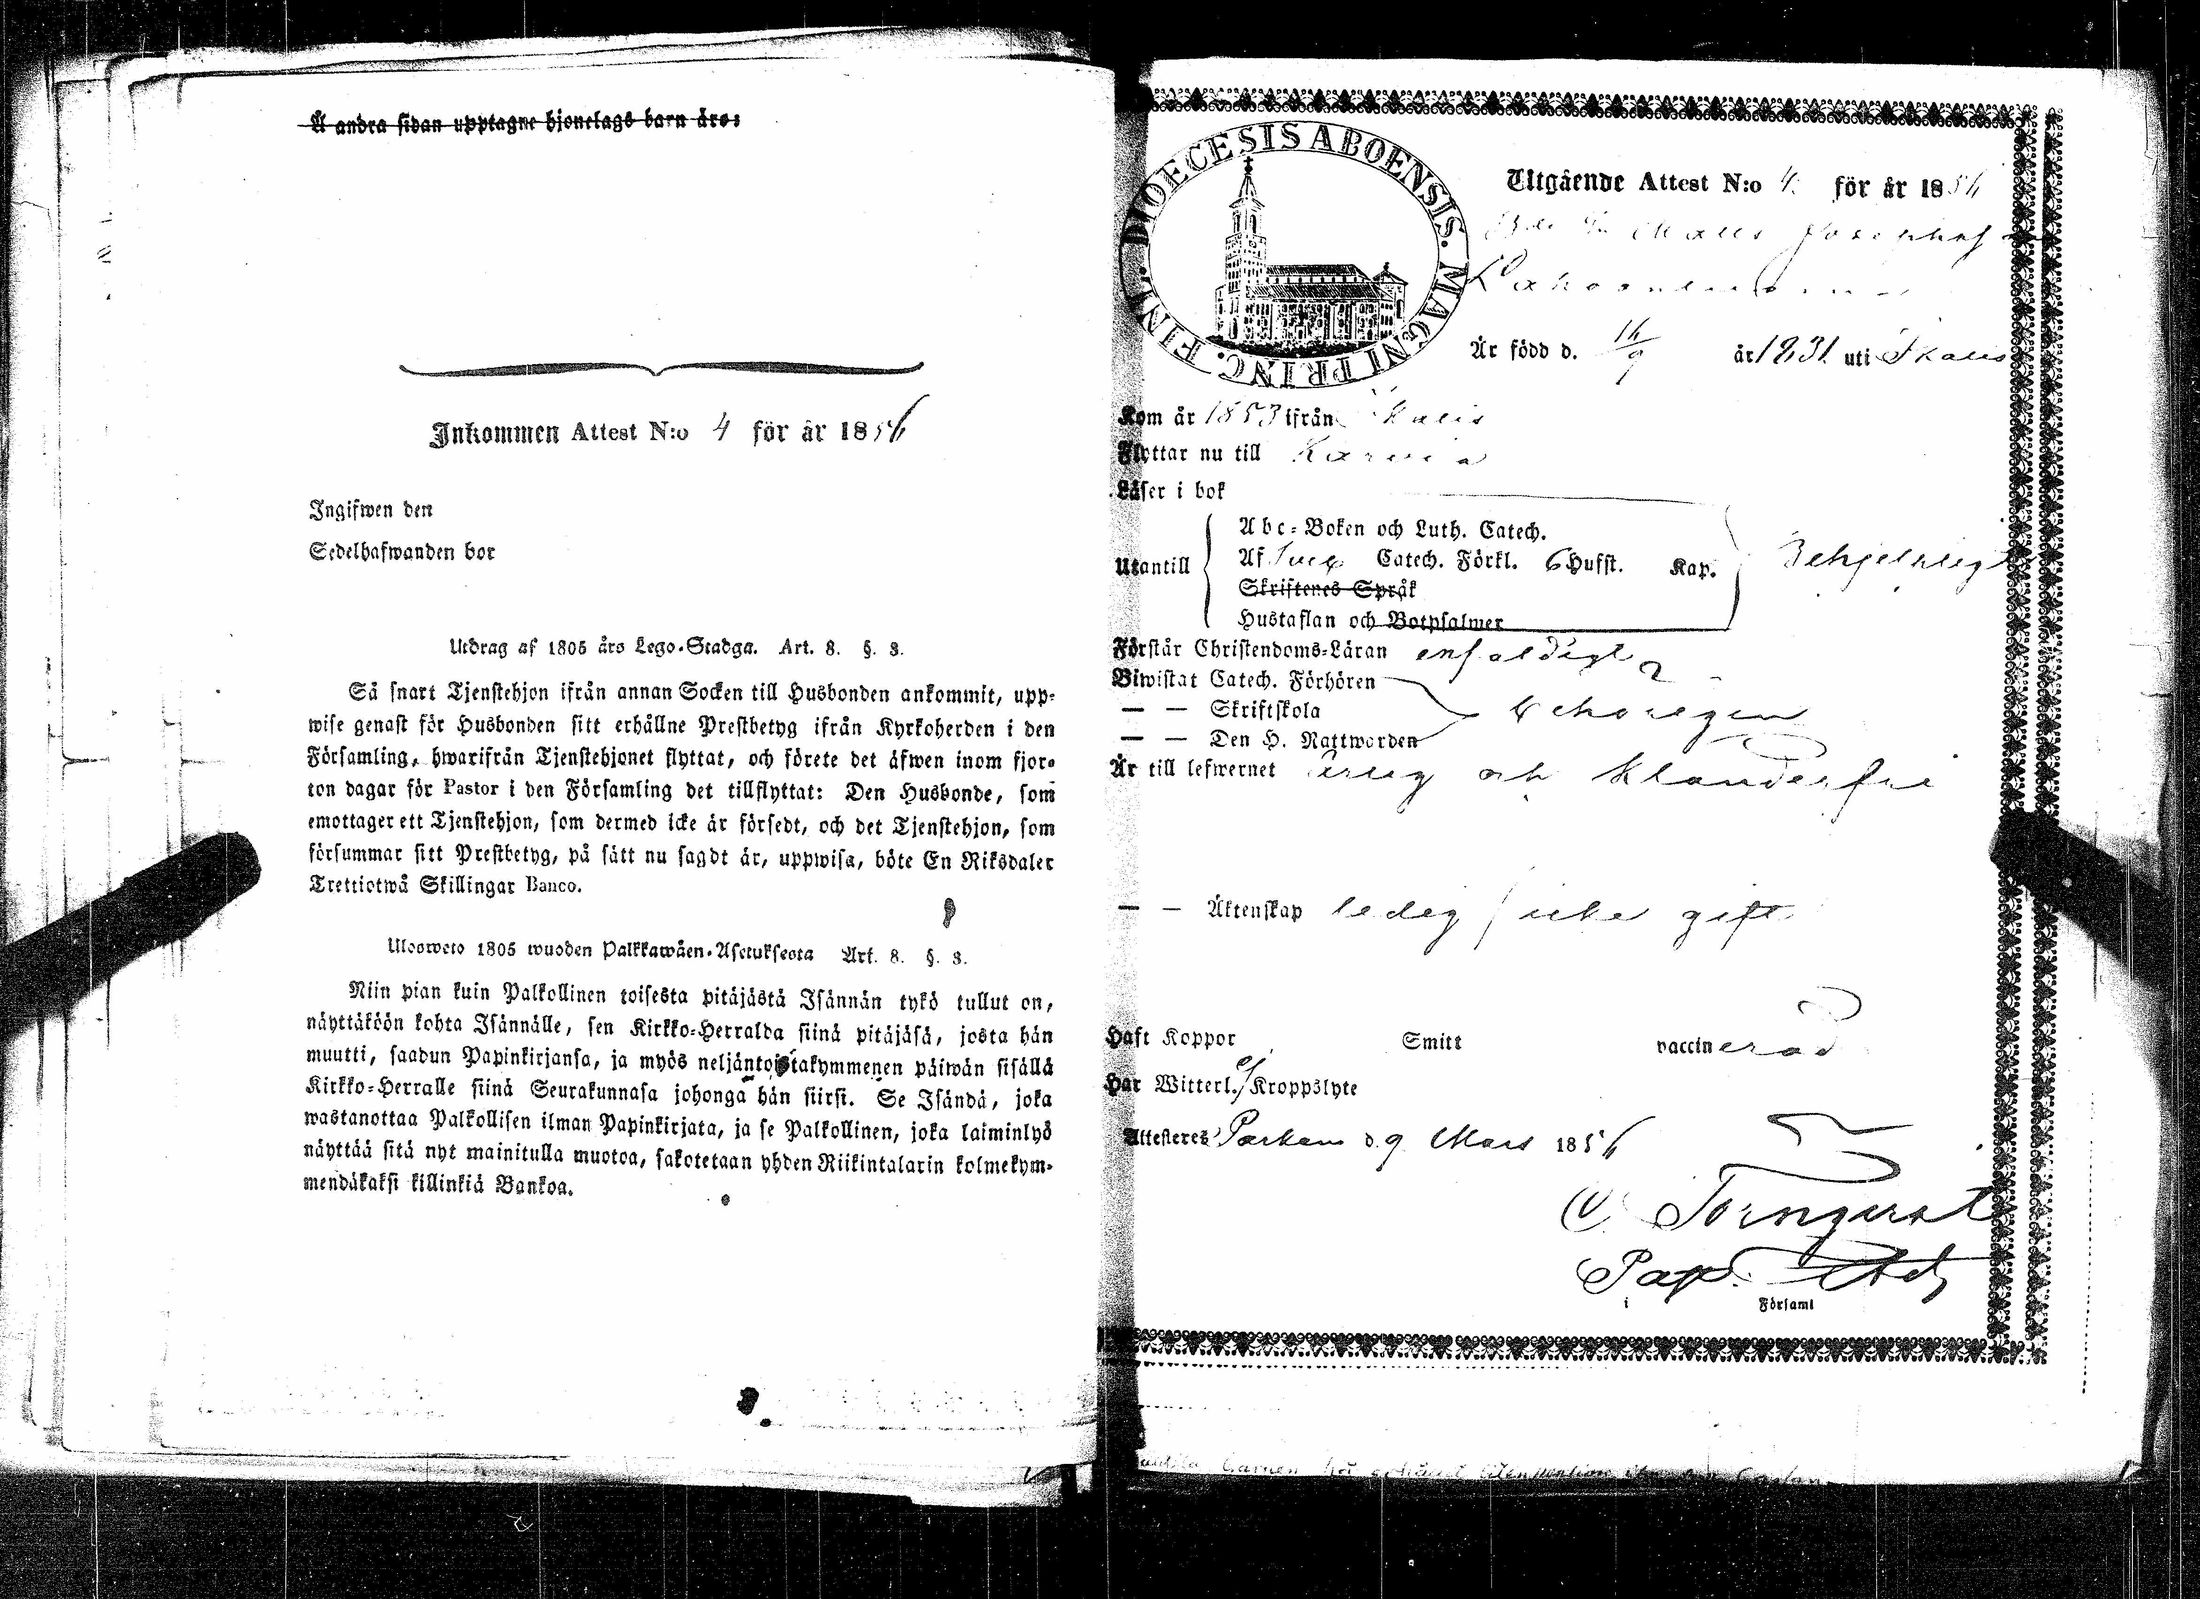 Å andra sidan upptagne hjonelags barn äro:
Inkommen Attest N:o 4 för år 1856
Ingifwen den
Sedelhafwanden bor
Utdrag af 1805 års Lego-Stadga. Art. 8. §. 3.
Så snart Tjenstehjon ifrån annan Socken till Husbonden ankommit, upp-
wise genast för Husbonden sitt erhållne Prestbetyg ifrån Kyrkoherden i den
Församling, hwarifrån Tjenstehjonet flyttat, och förete det äfwen inom fjor-
ton dagar för Pastor i den Församling det tillflyttat: Den Husbonde, som
emottager ett Tjenstehjon, som dermed icke är försedt, och det Tjenstehjon, som
försummar sitt Prestbetyg, på sätt nu sagdt är, uppwisa, böte En Riksdaler
Trettiotwå Skillingar Banco.
Ulosweto 1805 wuoden Palkkawäen-Asetuksesta Art. 8. §. 3.
Niin pian kuin Palkollinen toisesta pitäjästä Isännän tykö tullut on,
näyttäköön kohta Isännälle, sen Kirkko-Herralda siinä pitäjäsä, josta hän
muutti, saadun Papinkirjansa, ja myös neljäntoistakymmenen päiwän sisällä
Kirkko-Herralle siinä Seurakunnasa johonga hän siirsi. Se Isändä, joka
wastanottaa Palkollisen ilman Papinkirjata, ja se Palkollinen, joka laiminlyö
näyttää sitä nyt mainitulla muotoa, sakotetaan yhden Riikintalarin kolmekym-
mendäkaksi killinkiä Bankoa.
DIOECESIS ABOENSIS. MAGNI PRINC. FINL.
Utgående Attest N:o 4. för år 1856
Är född d. 16/9 år 1831 uti Ikalis
Kom år 1853 ifrån Ikalis
Flyttar nu till Karvia
Läser i bok
Utantill
Abc-Boken och Luth. Catech.
Af Sveb Catech. Förkl. 6 Hufst. Kap.
Skriftenes Språk
Hustaflan och Botpsalmer
Behjelpligt
Förstår Christendoms-Läran enfaldigt
Biwistat Catech. Förhören
— — Skriftskola
— — Den H. Nattwarden
behörigen
Är till lefwernet ärlig och klanderfri
— — Äktenskap ledig / icke gift
Haft Koppor Smitt vaccinerad
Har Witterl. ej Kroppslyte
Attesteres Parkano d. 9 Mars 1856
Törnqvist
Pap. Adj
i Församl